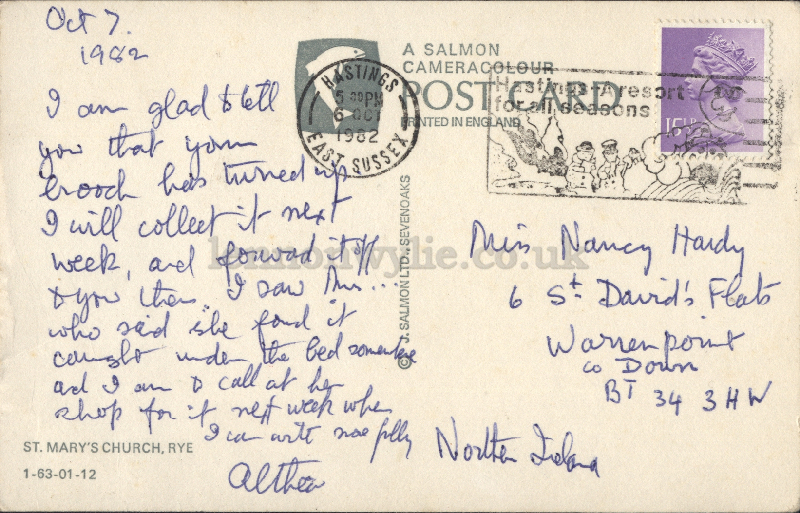 Oct 7.
1982
I am glad to tell
you that your
brooch has turned up
I will collect it next
week, and forward it off
to you then. I saw Mrs...
who said she fond it
caught under the bed somewhere
and I am to call at her
shop for it next week when
I can write more fully
Althea
ST. MARY'S CHURCH, RYE
1-63-01-12
A SALMON
CAMERACOLOUR
POST CARD
PRINTED IN ENGLAND
© J. SALMON LTD., SEVENOAKS
HASTINGS
5 30PM
6 OCT
1982
EAST SUSSEX
Hastings-A resort
for all seasons
Miss Nancy Hardy
6 St. David's Flats
Warrenpoint
Co Down
BT 34 3HW
Northern Ireland
lennonwylie.co.uk